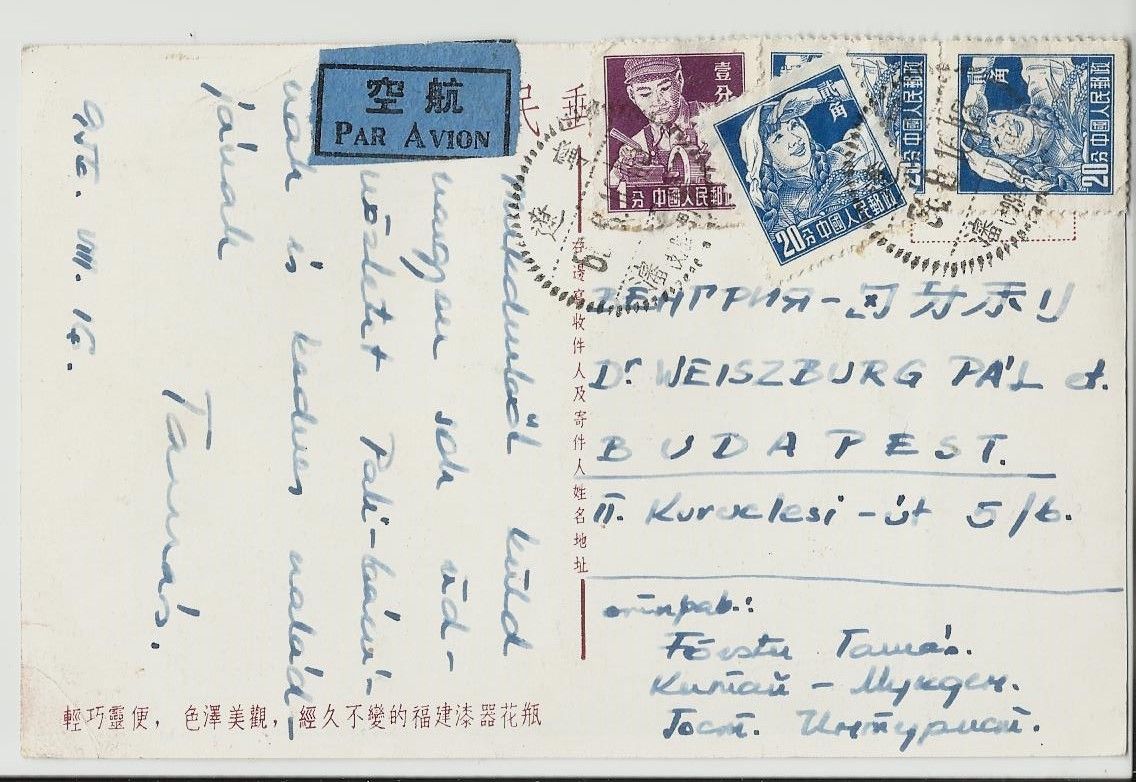 空航
PAR AVION
民
壹分
1分 中國人民郵政
貳角
20分 中國人民郵政
20分 中國人民郵政
貳角
20分 中國人民郵政
Mukdenből küld
nagyon sok üd-
vözletet Pali-bácsi-
nak és kedves család-
jának
Tamás.
956. VIII. 16.
邊寫收件人及寄件人姓名地址
ВЕНГРИЯ -
Dr WEISZBURG PÁL
BUDAPEST.
II. Kuruclesi-út 5/b.
отправ.:
Tamás.
Китай - Мукден.
Гост. Интурист.
輕巧靈便，色澤美觀，經久不變的福建漆器花瓶